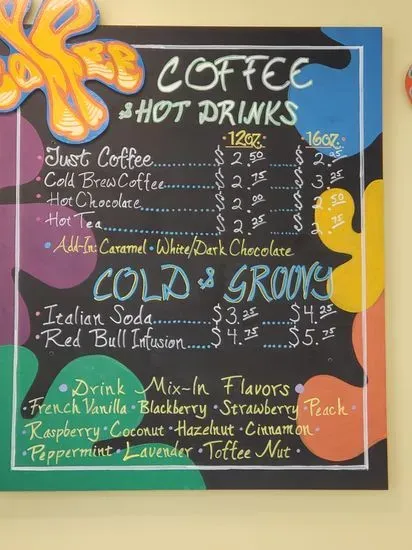 COFFEE
COFFEE
& HOT DRINKS
12oz. 16oz.
Just Coffee $2.50 $2.95
Cold Brew Coffee $2.75 $3.25
Hot Chocolate $2.00 $2.50
Hot Tea $2.25 $2.75
Add-In: Caramel • White/Dark Chocolate
COLD & GROOVY
Italian Soda $3.25 $4.25
Red Bull Infusion $4.75 $5.75
• Drink Mix-In Flavors •
• French Vanilla • Blackberry • Strawberry • Peach •
Raspberry • Coconut • Hazelnut • Cinnamon •
• Peppermint • Lavender • Toffee Nut •